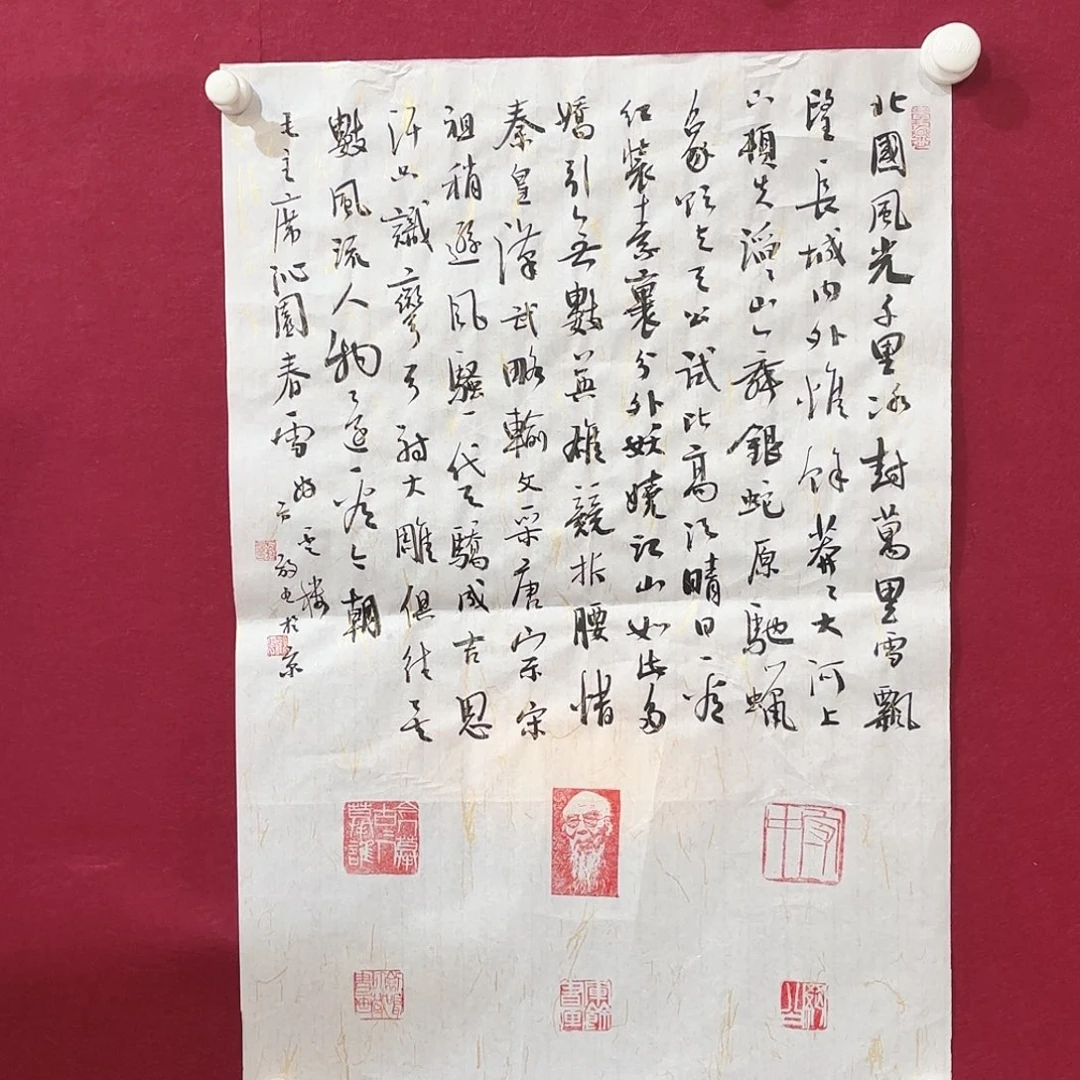 北國風光千里冰封萬里雪飄
望長城内外惟餘莽〻大河上
下頓失滔〻山舞銀蛇原馳蠟
象欲与天公試比高須晴日看
紅裝素裹分外妖嬈江山如此多
嬌引無數英雄競折腰惜
秦皇漢武略輸文采唐宗宋
祖稍遜風騷一代天驕成吉思
汗只識彎弓射大雕俱往矣
數風流人物還看今朝
毛主席沁園春雪
於京